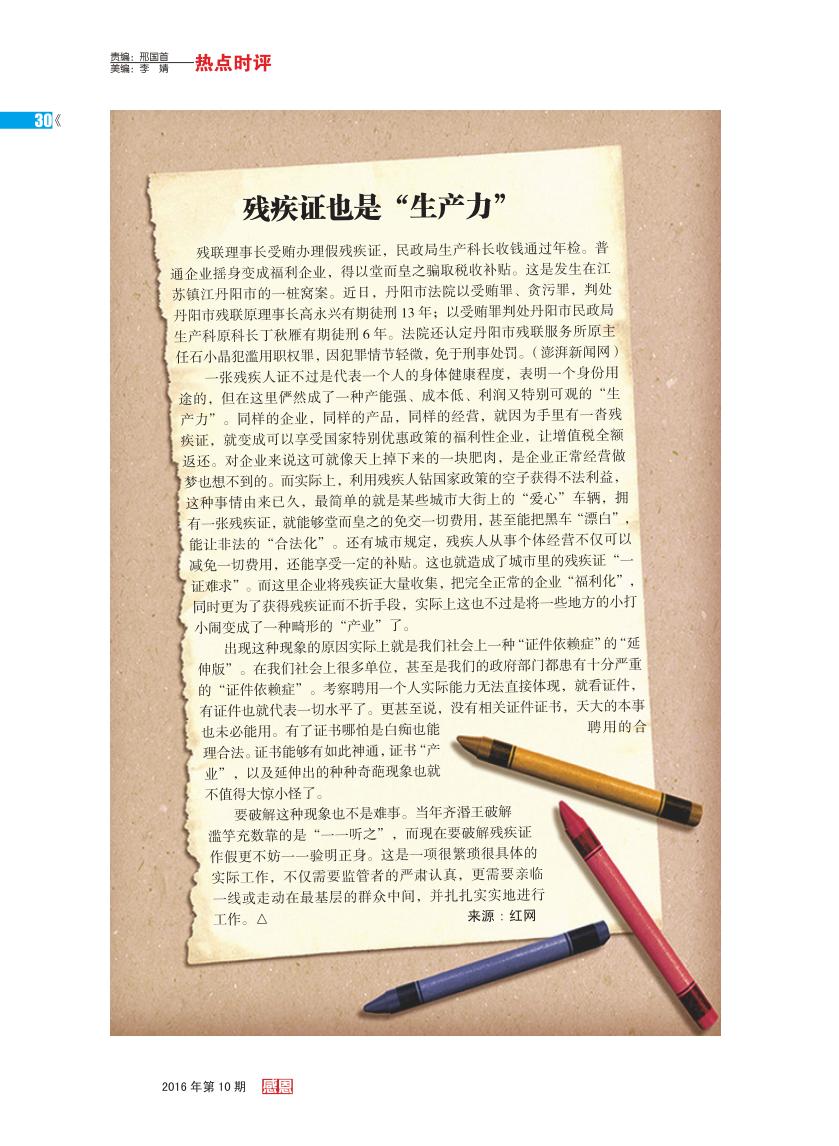 责编：邢国首
美编：李　婧
热点时评
30
残疾证也是“生产力”
残联理事长受贿办理假残疾证，民政局生产科长收钱通过年检。普
通企业摇身变成福利企业，得以堂而皇之骗取税收补贴。这是发生在江
苏镇江丹阳市的一桩窝案。近日，丹阳市法院以受贿罪、贪污罪，判处
丹阳市残联原理事长高永兴有期徒刑 13 年；以受贿罪判处丹阳市民政局
生产科原科长丁秋雁有期徒刑 6 年。法院还认定丹阳市残联服务所原主
任石小晶犯滥用职权罪，因犯罪情节轻微，免于刑事处罚。（澎湃新闻网）
一张残疾人证不过是代表一个人的身体健康程度，表明一个身份用
途的，但在这里俨然成了一种产能强、成本低、利润又特别可观的“生
产力”。同样的企业，同样的产品，同样的经营，就因为手里有一沓残
疾证，就变成可以享受国家特别优惠政策的福利性企业，让增值税全额
返还。对企业来说这可就像天上掉下来的一块肥肉，是企业正常经营做
梦也想不到的。而实际上，利用残疾人钻国家政策的空子获得不法利益，
这种事情由来已久，最简单的就是某些城市大街上的“爱心”车辆，拥
有一张残疾证，就能够堂而皇之的免交一切费用，甚至能把黑车“漂白”，
能让非法的“合法化”。还有城市规定，残疾人从事个体经营不仅可以
减免一切费用，还能享受一定的补贴。这也就造成了城市里的残疾证“一
证难求”。而这里企业将残疾证大量收集，把完全正常的企业“福利化”，
同时更为了获得残疾证而不折手段，实际上这也不过是将一些地方的小打
小闹变成了一种畸形的“产业”了。
出现这种现象的原因实际上就是我们社会上一种“证件依赖症”的“延
伸版”。在我们社会上很多单位，甚至是我们的政府部门都患有十分严重
的“证件依赖症”。考察聘用一个人实际能力无法直接体现，就看证件，
有证件也就代表一切水平了。更甚至说，没有相关证件证书，天大的本事
也未必能用。有了证书哪怕是白痴也能　聘用的合
理合法。证书能够有如此神通，证书“产
业”，以及延伸出的种种奇葩现象也就
不值得大惊小怪了。
要破解这种现象也不是难事。当年齐湣王破解
滥竽充数靠的是“一一听之”，而现在要破解残疾证
作假更不妨一一验明正身。这是一项很繁琐很具体的
实际工作，不仅需要监管者的严肃认真，更需要亲临
一线或走动在最基层的群众中间，并扎扎实实地进行
工作。△　来源：红网
2016 年第 10 期　感恩